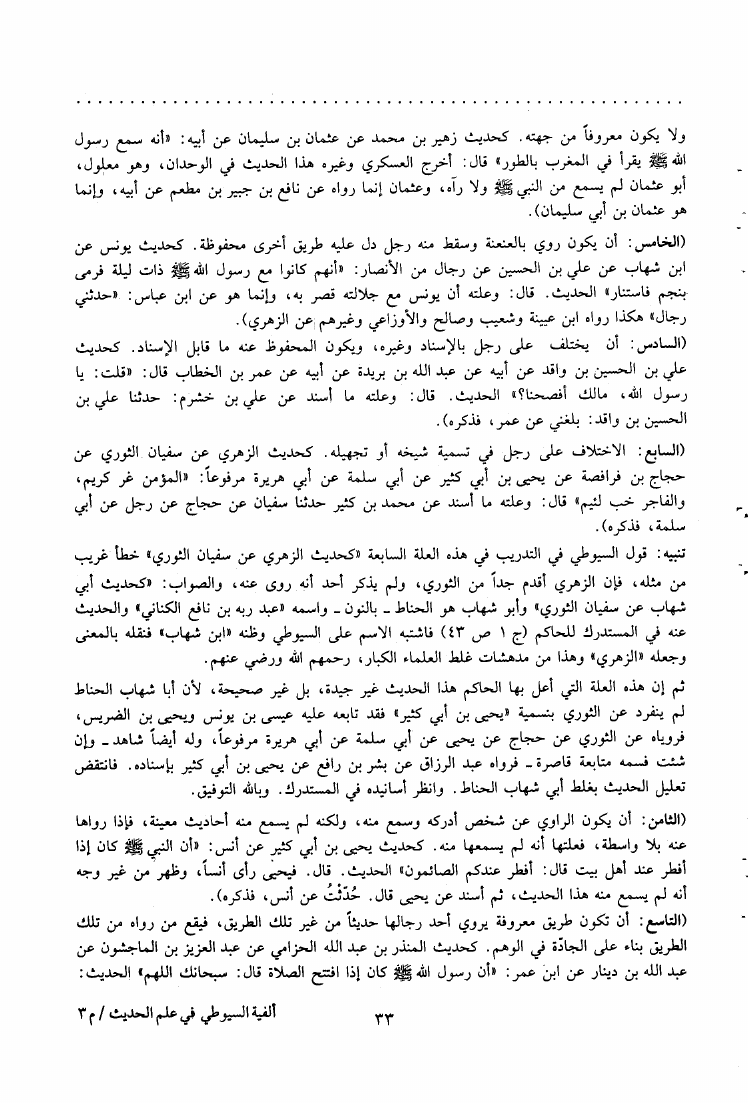 ولا يكون معروفاً من جهته. كحديث زهير بن محمد عن عثمان بن سليمان عن أبيه: «أنه سمع رسول
الله ﷺ يقرأ في المغرب بالطور» قال: أخرج العسكري وغيره هذا الحديث في الوحدان، وهو معلول،
أبو عثمان لم يسمع من النبي ﷺ ولا رآه، وعثمان إنما رواه عن نافع بن جبير بن مطعم عن أبيه، وإنما
هو عثمان بن أبي سليمان).
(الخامس: أن يكون روي بالعنعنة وسقط منه رجل دل عليه طريق أخرى محفوظة. كحديث يونس عن
ابن شهاب عن علي بن الحسين عن رجال من الأنصار: «أنهم كانوا مع رسول الله ﷺ ذات ليلة فرمى
بنجم فاستنار» الحديث. قال: وعلته أن يونس مع جلالته قصر به، وإنما هو عن ابن عباس: «حدثني
رجال» هكذا رواه ابن عيينة وشعيب وصالح والأوزاعي وغيرهم عن الزهري).
(السادس: أن يختلف على رجل بالإسناد وغيره، ويكون المحفوظ عنه ما قابل الإسناد. كحديث
علي بن الحسين بن واقد عن أبيه عن عبد الله بن بريدة عن أبيه عن عمر بن الخطاب قال: «قلت: يا
رسول الله، مالك أفصحنا؟» الحديث. قال: وعلته ما أسند عن علي بن خشرم: حدثنا علي بن
الحسين بن واقد: بلغني عن عمر، فذكره).
(السابع: الاختلاف على رجل في تسمية شيخه أو تجهيله. كحديث الزهري عن سفيان الثوري عن
حجاج بن فرافصة عن يحيى بن أبي كثير عن أبي سلمة عن أبي هريرة مرفوعاً: «المؤمن غر كريم،
والفاجر خب لئيم» قال: وعلته ما أسند عن محمد بن كثير حدثنا سفيان عن حجاج عن رجل عن أبي
سلمة، فذكره).
تنبيه: قول السيوطي في التدريب في هذه العلة السابعة «كحديث الزهري عن سفيان الثوري» خطأ غريب
من مثله، فإن الزهري أقدم جداً من الثوري، ولم يذكر أحد أنه روى عنه، والصواب: «كحديث أبي
شهاب عن سفيان الثوري» وأبو شهاب هو الحناط ـ بالنون ـ واسمه «عبد ربه بن نافع الكناني» والحديث
عنه في المستدرك للحاكم (ج ١ ص ٤٣) فاشتبه الاسم على السيوطي وظنه «ابن شهاب» فنقله بالمعنى
وجعله «الزهري» وهذا من مدهشات غلط العلماء الكبار، رحمهم الله ورضي عنهم.
ثم إن هذه العلة التي أعل بها الحاكم هذا الحديث غير جيدة، بل غير صحيحة، لأن أبا شهاب الحناط
لم ينفرد عن الثوري بتسمية «يحيى بن أبي كثير» فقد تابعه عليه عيسى بن يونس ويحيى بن الضريس،
فروياه عن الثوري عن حجاج عن يحيى عن أبي سلمة عن أبي هريرة مرفوعاً، وله أيضاً شاهد ـ وإن
شئت فسمه متابعة قاصرة ـ فرواه عبد الرزاق عن بشر بن رافع عن يحيى بن أبي كثير بإسناده. فانتقض
تعليل الحديث بغلط أبي شهاب الحناط. وانظر أسانيده في المستدرك. وبالله التوفيق.
(الثامن: أن يكون الراوي عن شخص أدركه وسمع منه، ولكنه لم يسمع منه أحاديث معينة، فإذا رواها
عنه بلا واسطة، فعلتها أنه لم يسمعها منه. كحديث يحيى بن أبي كثير عن أنس: «أن النبي ﷺ كان إذا
أفطر عند أهل بيت قال: أفطر عندكم الصائمون» الحديث. قال. فيحيى رأى أنساً، وظهر من غير وجه
أنه لم يسمع منه هذا الحديث، ثم أسند عن يحيى قال. حُدّثْتُ عن أنس، فذكره).
(التاسع: أن تكون طريق معروفة يروي أحد رجالها حديثاً من غير تلك الطريق، فيقع من رواه من تلك
الطريق بناء على الجادّة في الوهم. كحديث المنذر بن عبد الله الحزامي عن عبد العزيز بن الماجشون عن
عبد الله بن دينار عن ابن عمر: «أن رسول الله ﷺ كان إذا افتتح الصلاة قال: سبحانك اللهم» الحديث:
ألفية السيوطي في علم الحديث / م ٣
٣٣